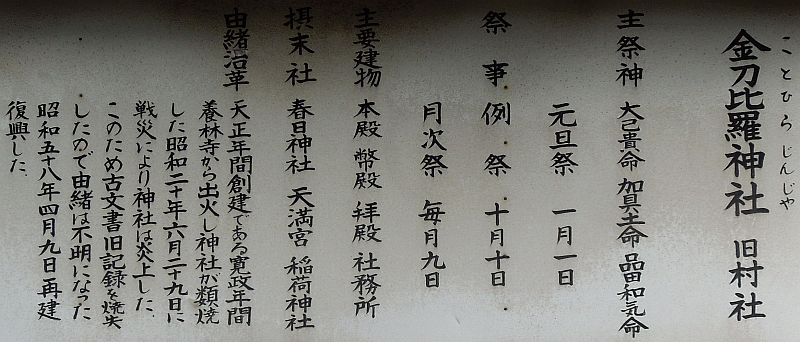 ことひらじんじゃ
金刀比羅神社 旧村社
主祭神 大己貴命 加具土命 品田和気命
元旦祭 一月一日
祭事 例祭 十月十日
月次祭 毎月九日
主要建物 本殿 幣殿 拝殿 社務所
摂末社 春日神社 天満宮 稲荷神社
由緒沿革 天正年間創建である寛政年間
養林寺から出火し神社が類焼
した昭和二十年六月二十九日に
戦災により神社は炎上した、
このため古文書旧記録を焼失
したので由緒は不明になった
昭和五十八年四月九日再建
復興した、